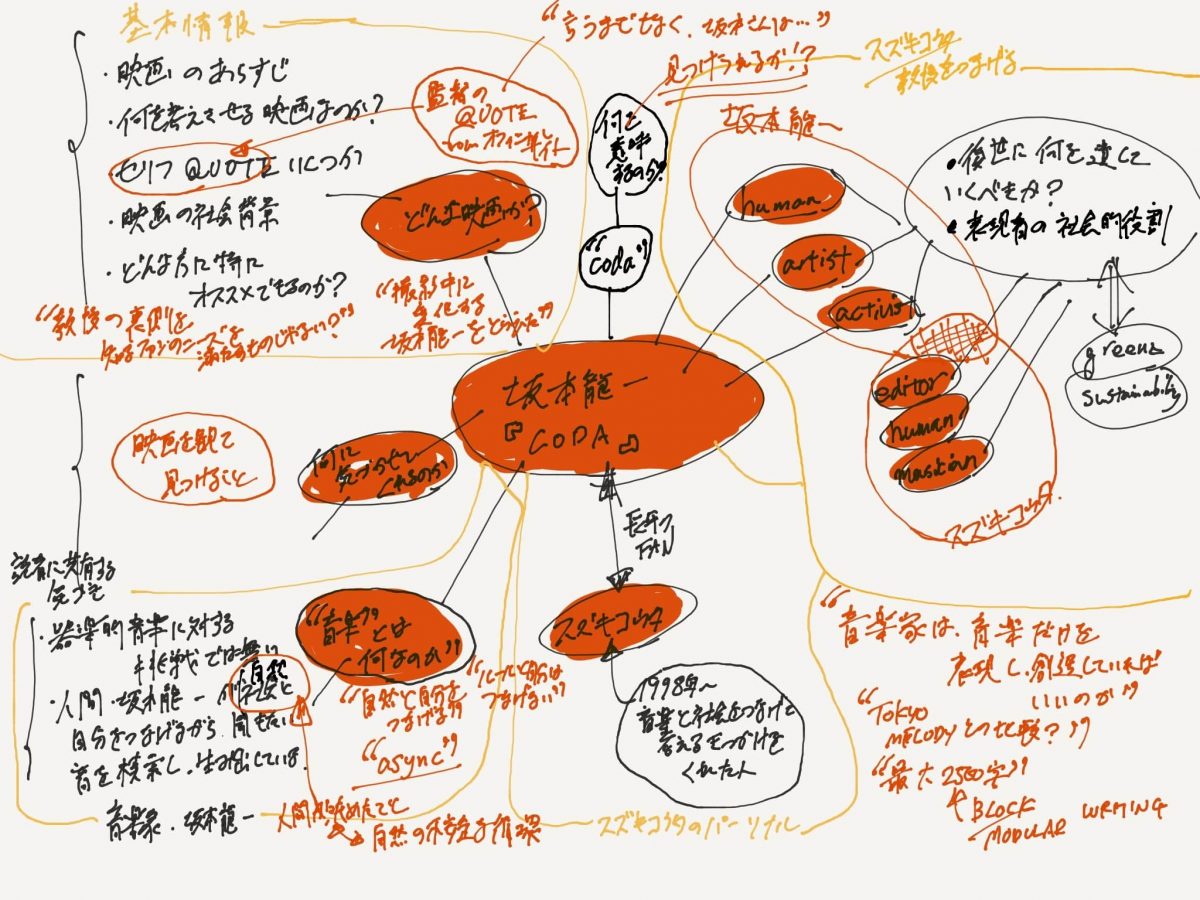 基本情報
・映画のあらすじ
・何を考えさせる映画なのか？
セリフQUOTE いくつか
・映画の社会背景
・どんな方に特に
オススメできるのか？
"教授の裏側を
知るファンのニーズを
満たすものじゃない？"
監督の
QUOTE
from オフィシャルサイト
"言うまでもなく、坂本さんは…"
見つけられるか!?
何を
意味
するのか？
"coda"
どんな映画か？
"撮影中に
変化する
坂本龍一をどう
スズキコウタ
教授をつなげる
坂本龍一
human
artist
activist
・後世に何を遺して
いくべきか？
・表現者の社会的役割
greenz
sustainability
editor
human
スズキコウタ
坂本龍一
『CODA』
映画を観て
見つけること
何に
気づかせて
くれるのか
長年の
FAN
スズキコウタ
1998年〜
音楽と社会をつなげて
考えるきっかけを
くれた人
読者に共有する
気づき
・器楽的音楽に対する
挑戦では無い
・人間・坂本龍一が
自然
自分をつなげながら、聞きたい
音を検索し、生み出している。
音楽家・坂本龍一
"音楽"とは
何なのか"
"自然と自分を
つなげる"
"ルールと自分は
つなげない"
"async"
人間が決めたこと
自然の不整合な循環
スズキコウタのパーソナル
"音楽家は、音楽だけを
表現し、創造していれば
いいのか"
"TOKYO
MELODYとの比較？"
"最大2500字"
BLOCK
MODULAR WRITING